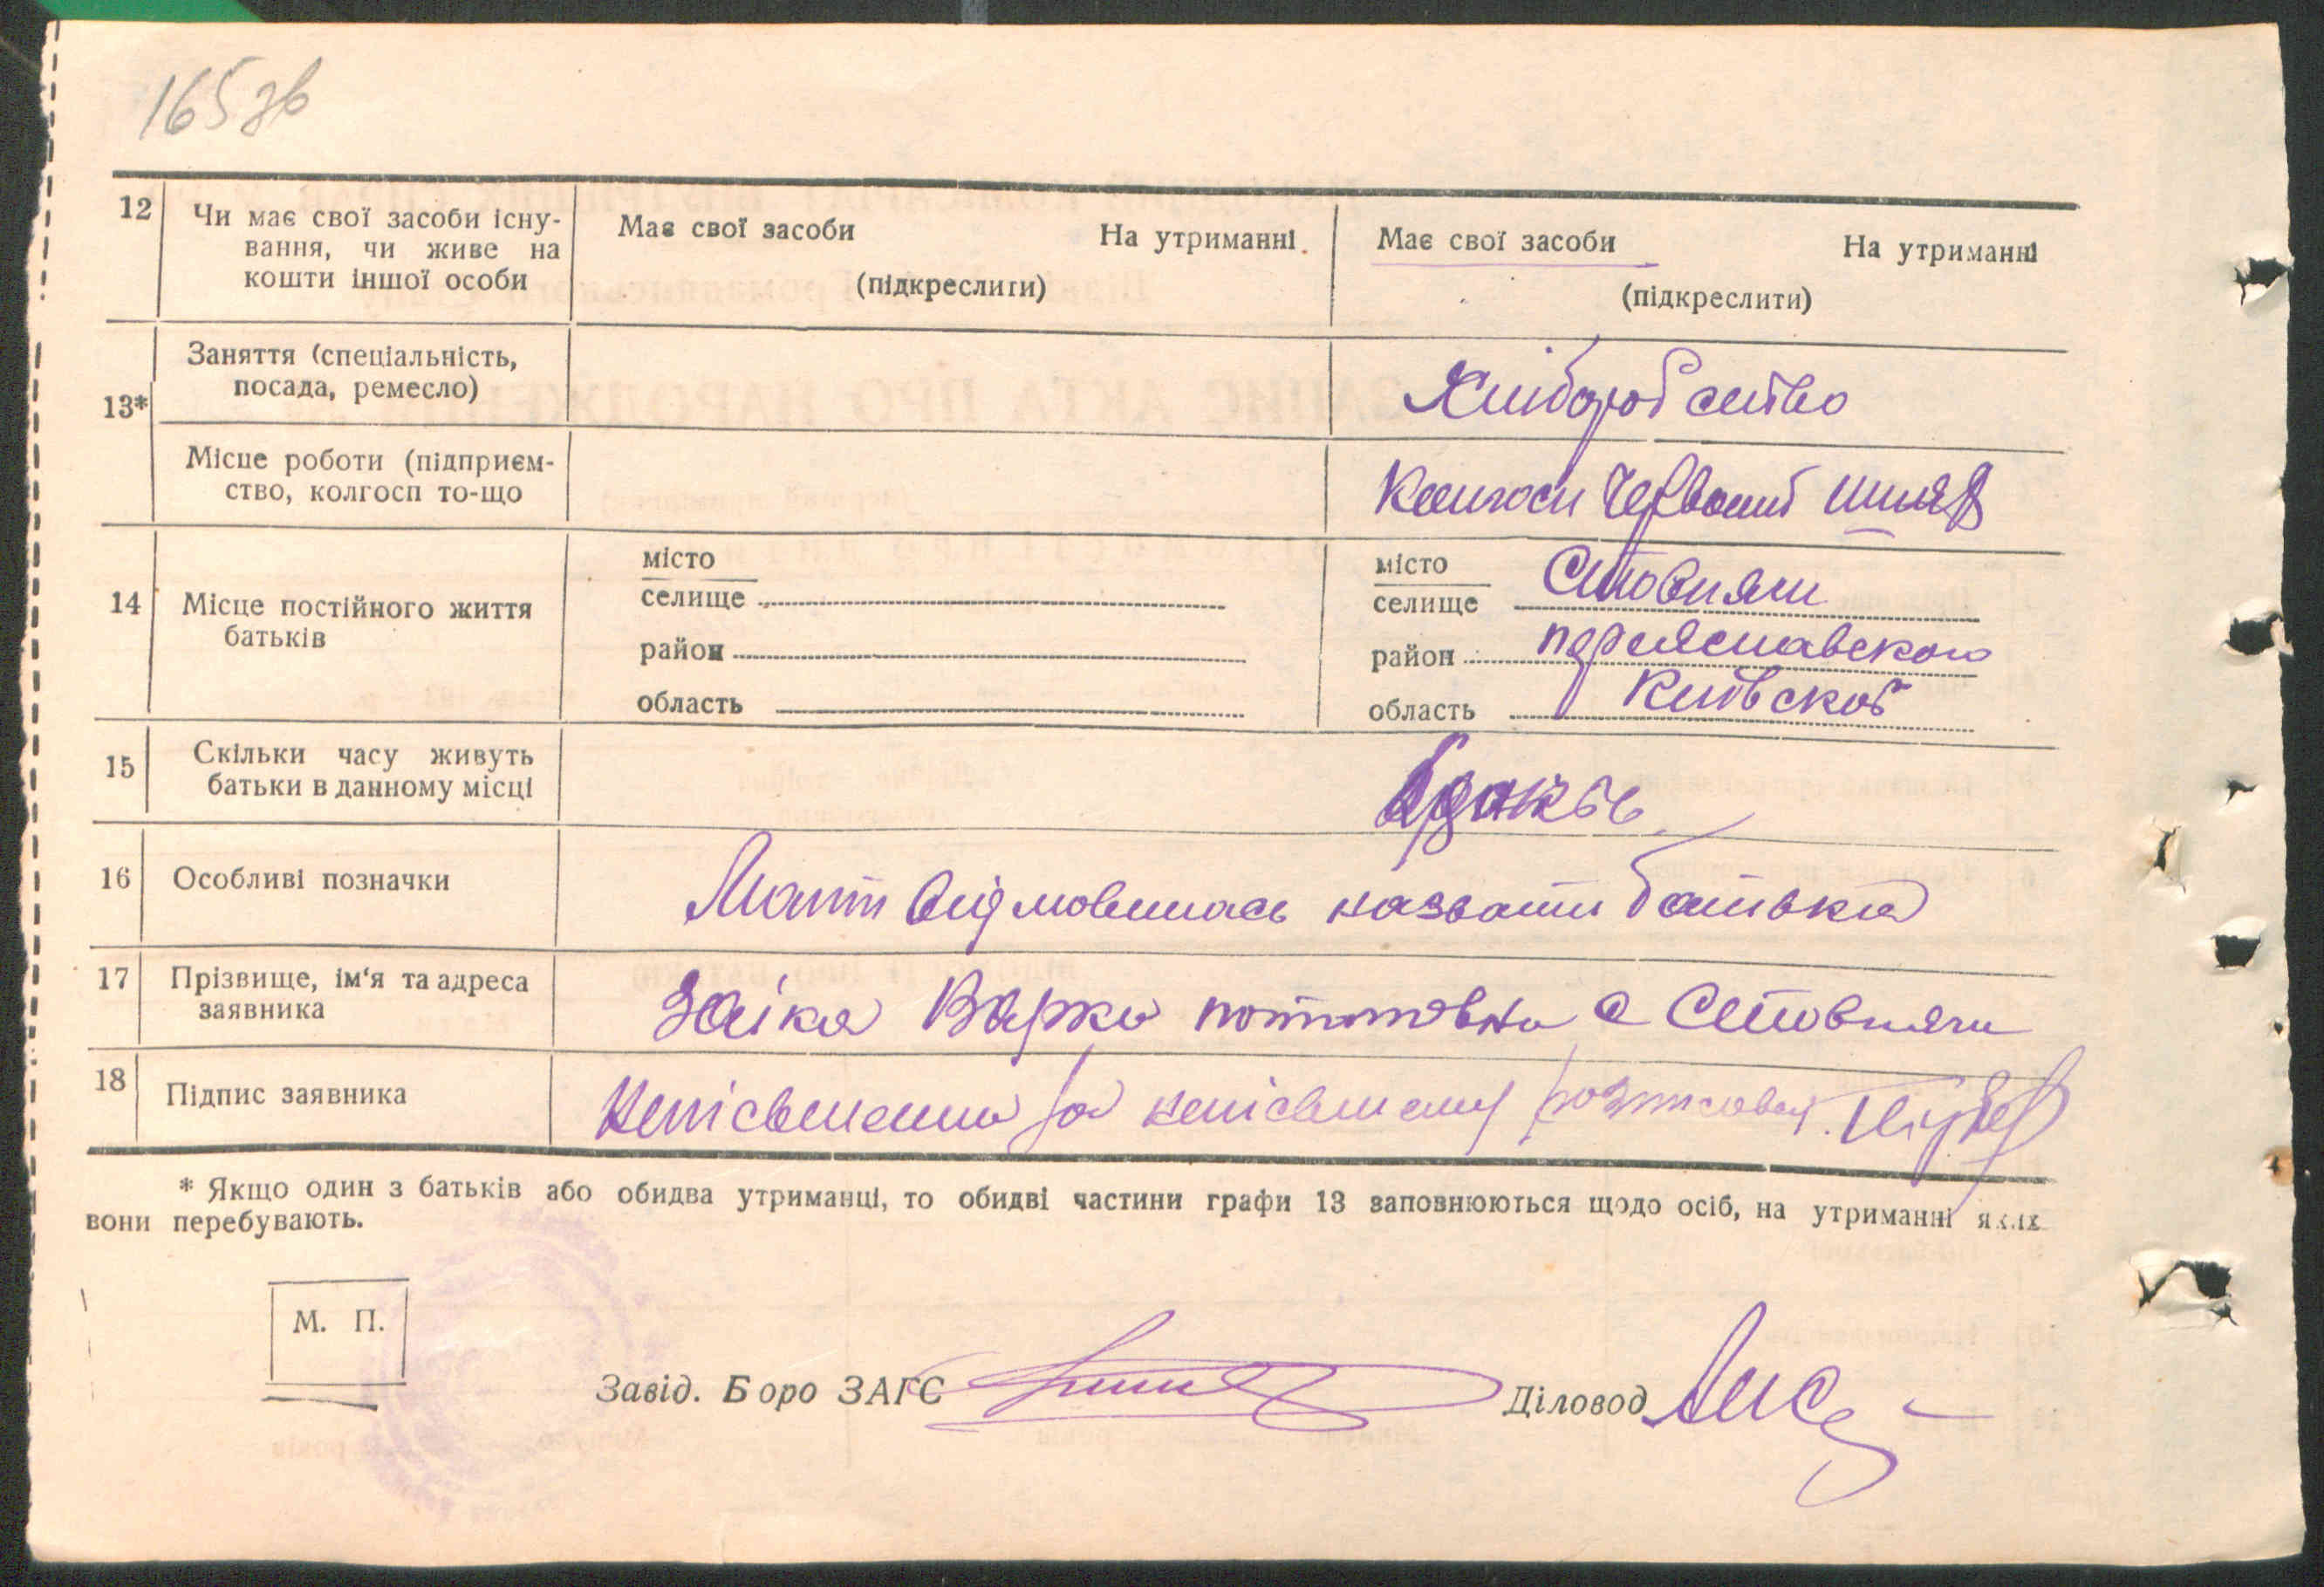 165 зв
12
Чи має свої засоби існу-
вання, чи живе на
кошти іншої особи
Має свої засоби На утриманні
(підкреслити)
Має свої засоби На утриманні
(підкреслити)
13*
Заняття (спеціальність,
посада, ремесло)
Хліборобство
Місце роботи (підприєм-
ство, колгосп то-що
Колгосп Червоний шлях
14
Місце постійного життя
батьків
місто
селище
район
область
місто
селище Стовпяги
район переяславского
область Київской
15
Скільки часу живуть
батьки в данному місці
16
Особливі позначки
Мати відмовилась назвати батька
17
Прізвище, ім'я та адреса
заявника
Заїка Варка с Стовпяги
18
Підпис заявника
неписьменна за неписьмену росписовая
* Якщо один з батьків або обидва утриманці, то обидві частини графи 13 заповнюються щодо осіб, на утриманні яких
вони перебувають.
М. П.
Завід. Бюро ЗАГС
Діловод